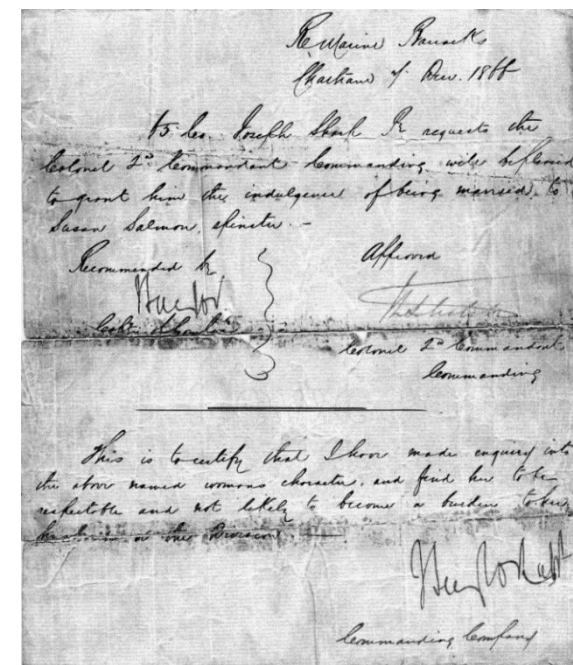 Rl. Marine Barracks
Chatham 7 Decr. 1866
65 Co. Joseph Sharp Pe requests the
Colonel 2d Commandant Commanding will be pleased
to grant him the indulgence of being married to
Susan Salmon, spinster. -
Recommended by
Approved
Colonel 2d Commandant
Commanding
This is to certify that I have made enquiry into
the above named womans character, and find her to be
respectable and not likely to become a burden to her
husband or the Division.
Commanding Company